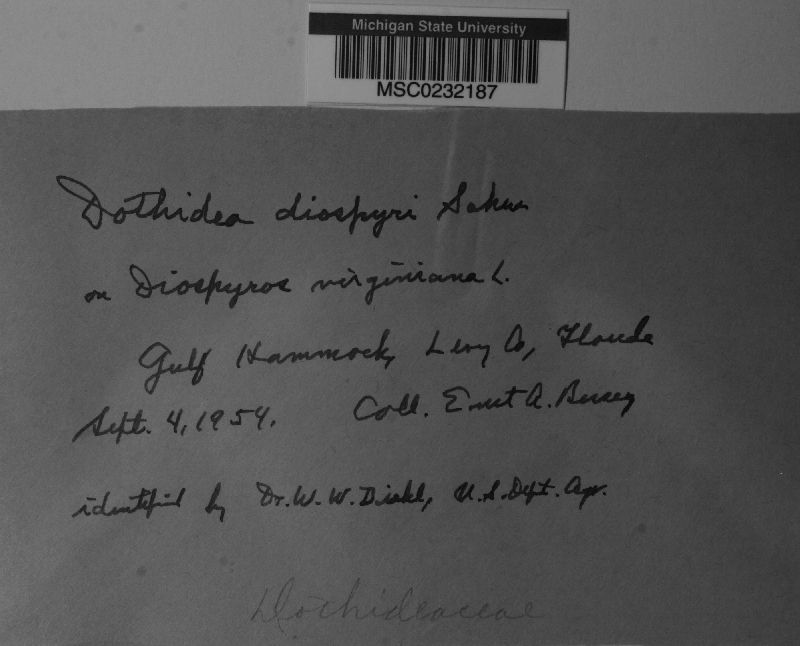 Michigan State University
MSC0232187
Dothidea diospyri
on Diospyros virginiana L.
Gulf Hammock, Levy Co, Florida
Sept. 4, 1954. Coll. Ernst A. Bessey
identified by Dr. W. W. Diehl, U.S. Dept. Agr.
Dothideaceae